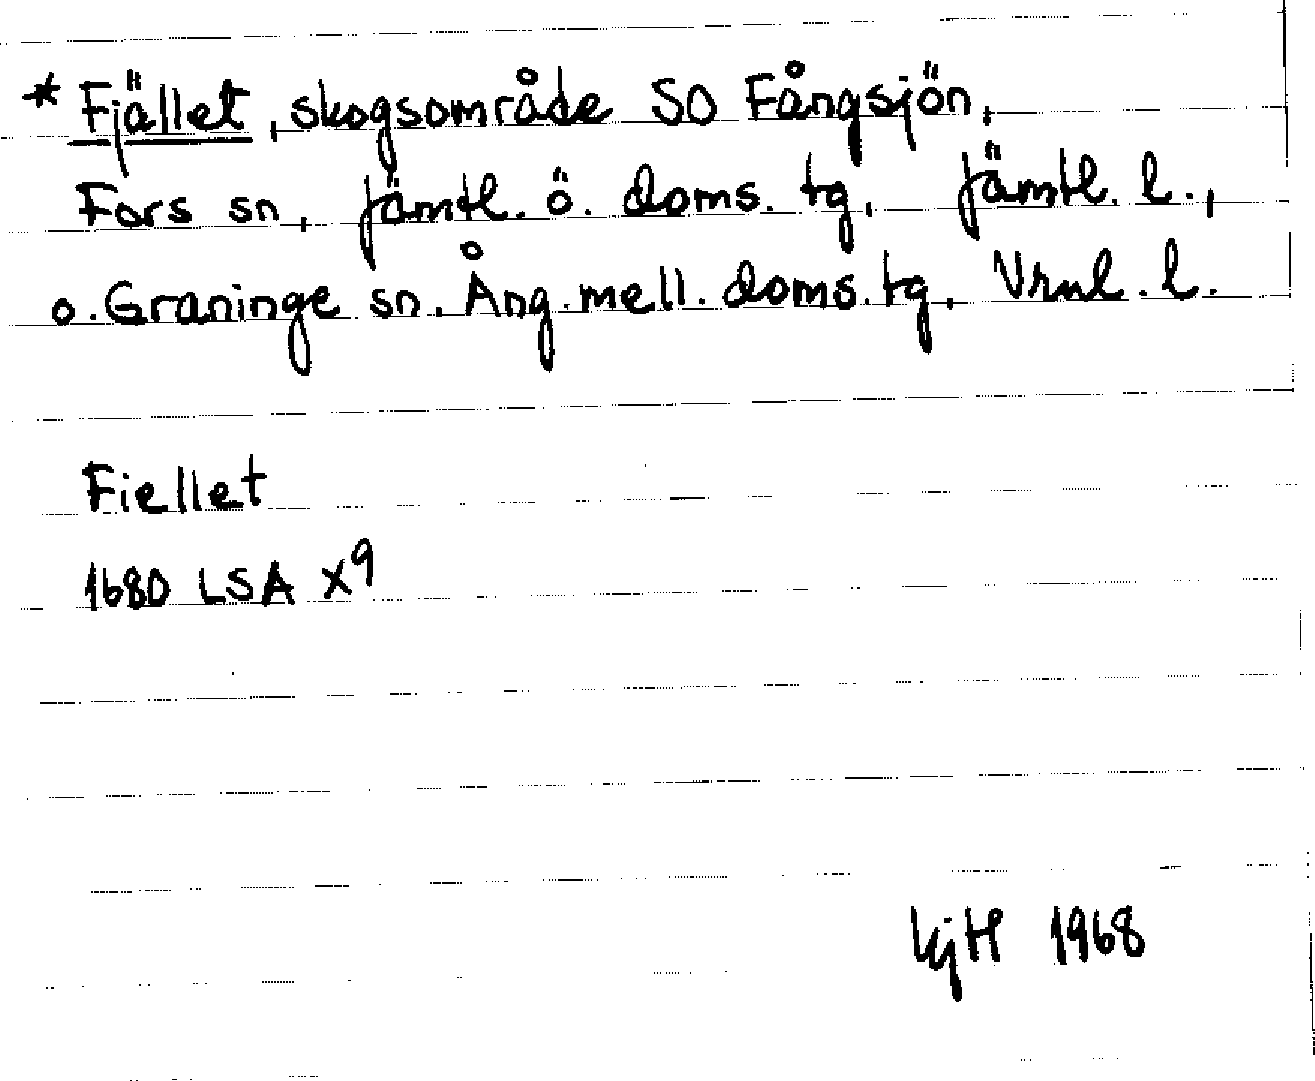 * Fjället, skogsområde SO Fångsjön,
Fors sn, Jämtl. ö. doms. tg, Jämtl. l.,
o. Graninge sn. Ång. mell. doms. tg, Vrnl. l.
Fiellet
1680 LSA X9
KjH 1968